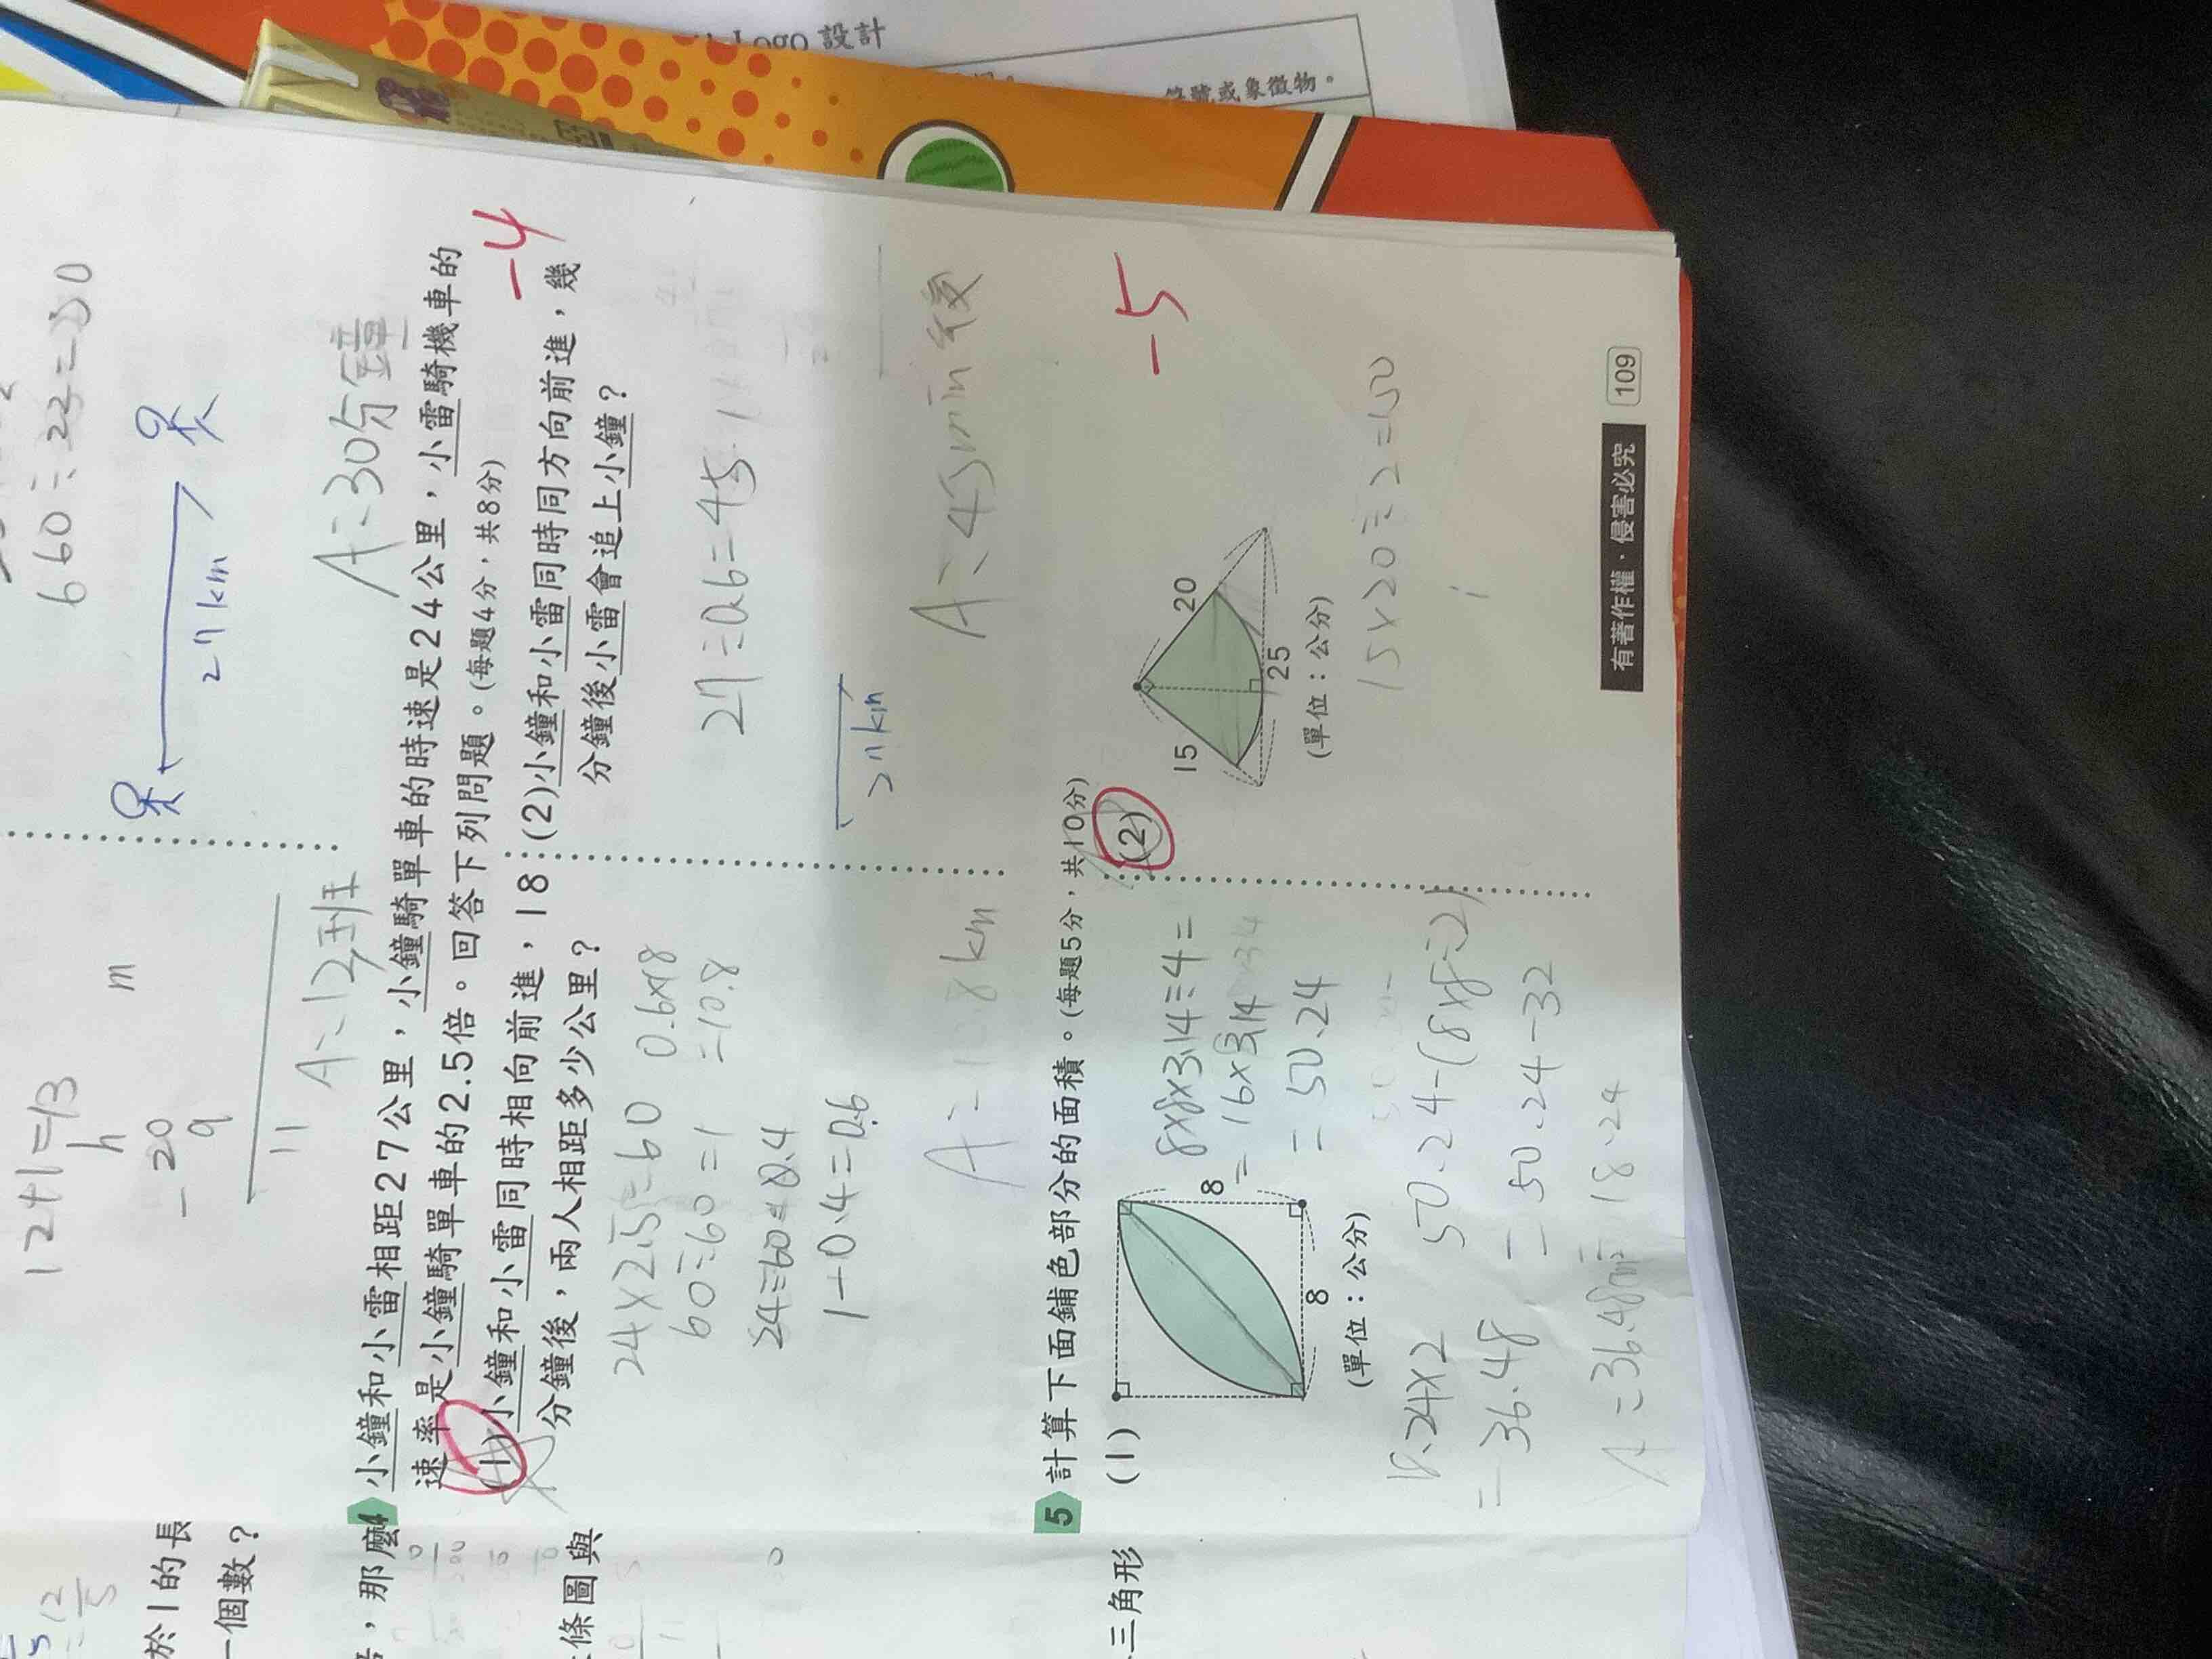 Logo 設計
符號或象徵物。
660÷22=30
27km
A:30分鐘
12+1=13
h m
-20
9
11
A:12班
於1的長
一個數？
，那麼
條圖與
三角形
4 小鐘和小雷相距27公里，小鐘騎單車的時速是24公里，小雷騎機車的
速率是小鐘騎單車的2.5倍。回答下列問題。(每題4分，共8分)
-4
(1)小鐘和小雷同時相向前進，18
分鐘後，兩人相距多少公里？
24×2.5=60
60÷60=1
24÷60=0.4
1-0.4=0.6
0.6×18
=10.8
(2)小鐘和小雷同時同方向前進，幾
分鐘後小雷會追上小鐘？
27÷0.6=45
27km
A:45min後
5 計算下面鋪色部分的面積。(每題5分，共10分)
(1)
8
8
(單位：公分)
8×8×3.14÷4=
=16×3.14
=50.24
50.24-(8×8÷2)
=50.24-32
18.24
18.24×2
=36.48
(2)
-5
15
20
25
(單位：公分)
15×20÷2=150
有著作權．侵害必究
109